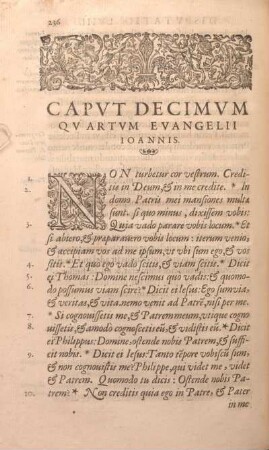 236
CAPVT DECIMVM
QVARTVM EVANGELII
IOANNIS.
1. NON turbetur cor vestrum. Credi-
2. tis in Deum, & in me credite. * In
domo Patris mei mansiones multæ
sunt. si quo minus, dixissem vobis:
3. Quia vado parare vobis locum. * Et
si abiero, & præparauero vobis locum: iterum venio,
& accipiam vos ad me ipsum, vt vbi sum ego, & vos
4. sitis. * Et quò ego vado scitis, & viam scitis. * Di-
5. cit ei Thomas: Domine nescimus quò vadis: & quomo-
6. do possumus viam scire? * Dicit ei Iesus: Ego sum via,
& veritas, & vita. nemo venit ad Patrē, nisi per me.
7. * Si cognouissetis me, & Patrem meum, vtique cogno
uissetis, & amodo cognoscetis eū, & vidistis eū. * Dicit
8. ei Philippus: Domine, ostende nobis Patrem, & suffi-
9. cit nobis. * Dicit ei Iesus: Tanto tēpore vobiscū sum,
& non cognouistis me? Philippe, qui videt me, videt
& Patrem. Quomodo tu dicis: Ostende nobis Pa-
10. trem? * Non creditis quia ego in Patre, & Pater
in me